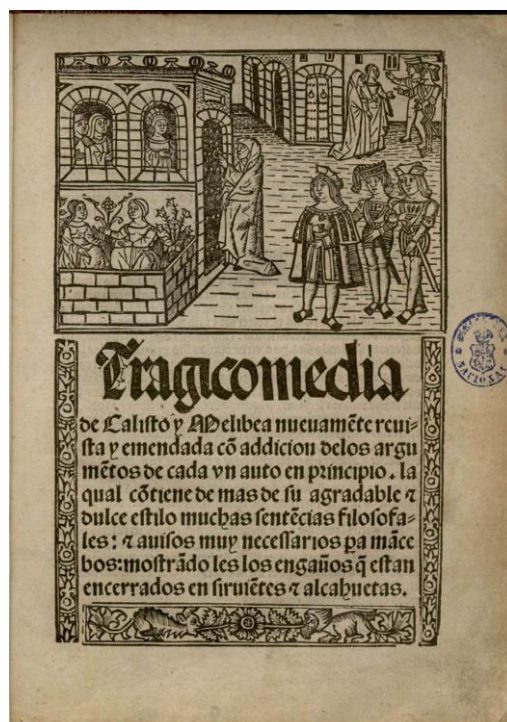 Tragicomedia
de Calisto y Melibea nueuamẽte reui⸗
sta y emendada cõ addicion delos argu
mẽtos de cada vn auto en principio. la
qual cõtiene de mas de su agradable ⁊
dulce estilo muchas sentẽcias filosofa⸗
les: ⁊ auisos muy necessarios ꝑa mãce
bos: mostrãdo les los engaños q̃ estan
encerrados en siruiẽtes ⁊ alcahuetas.
NACIONAL